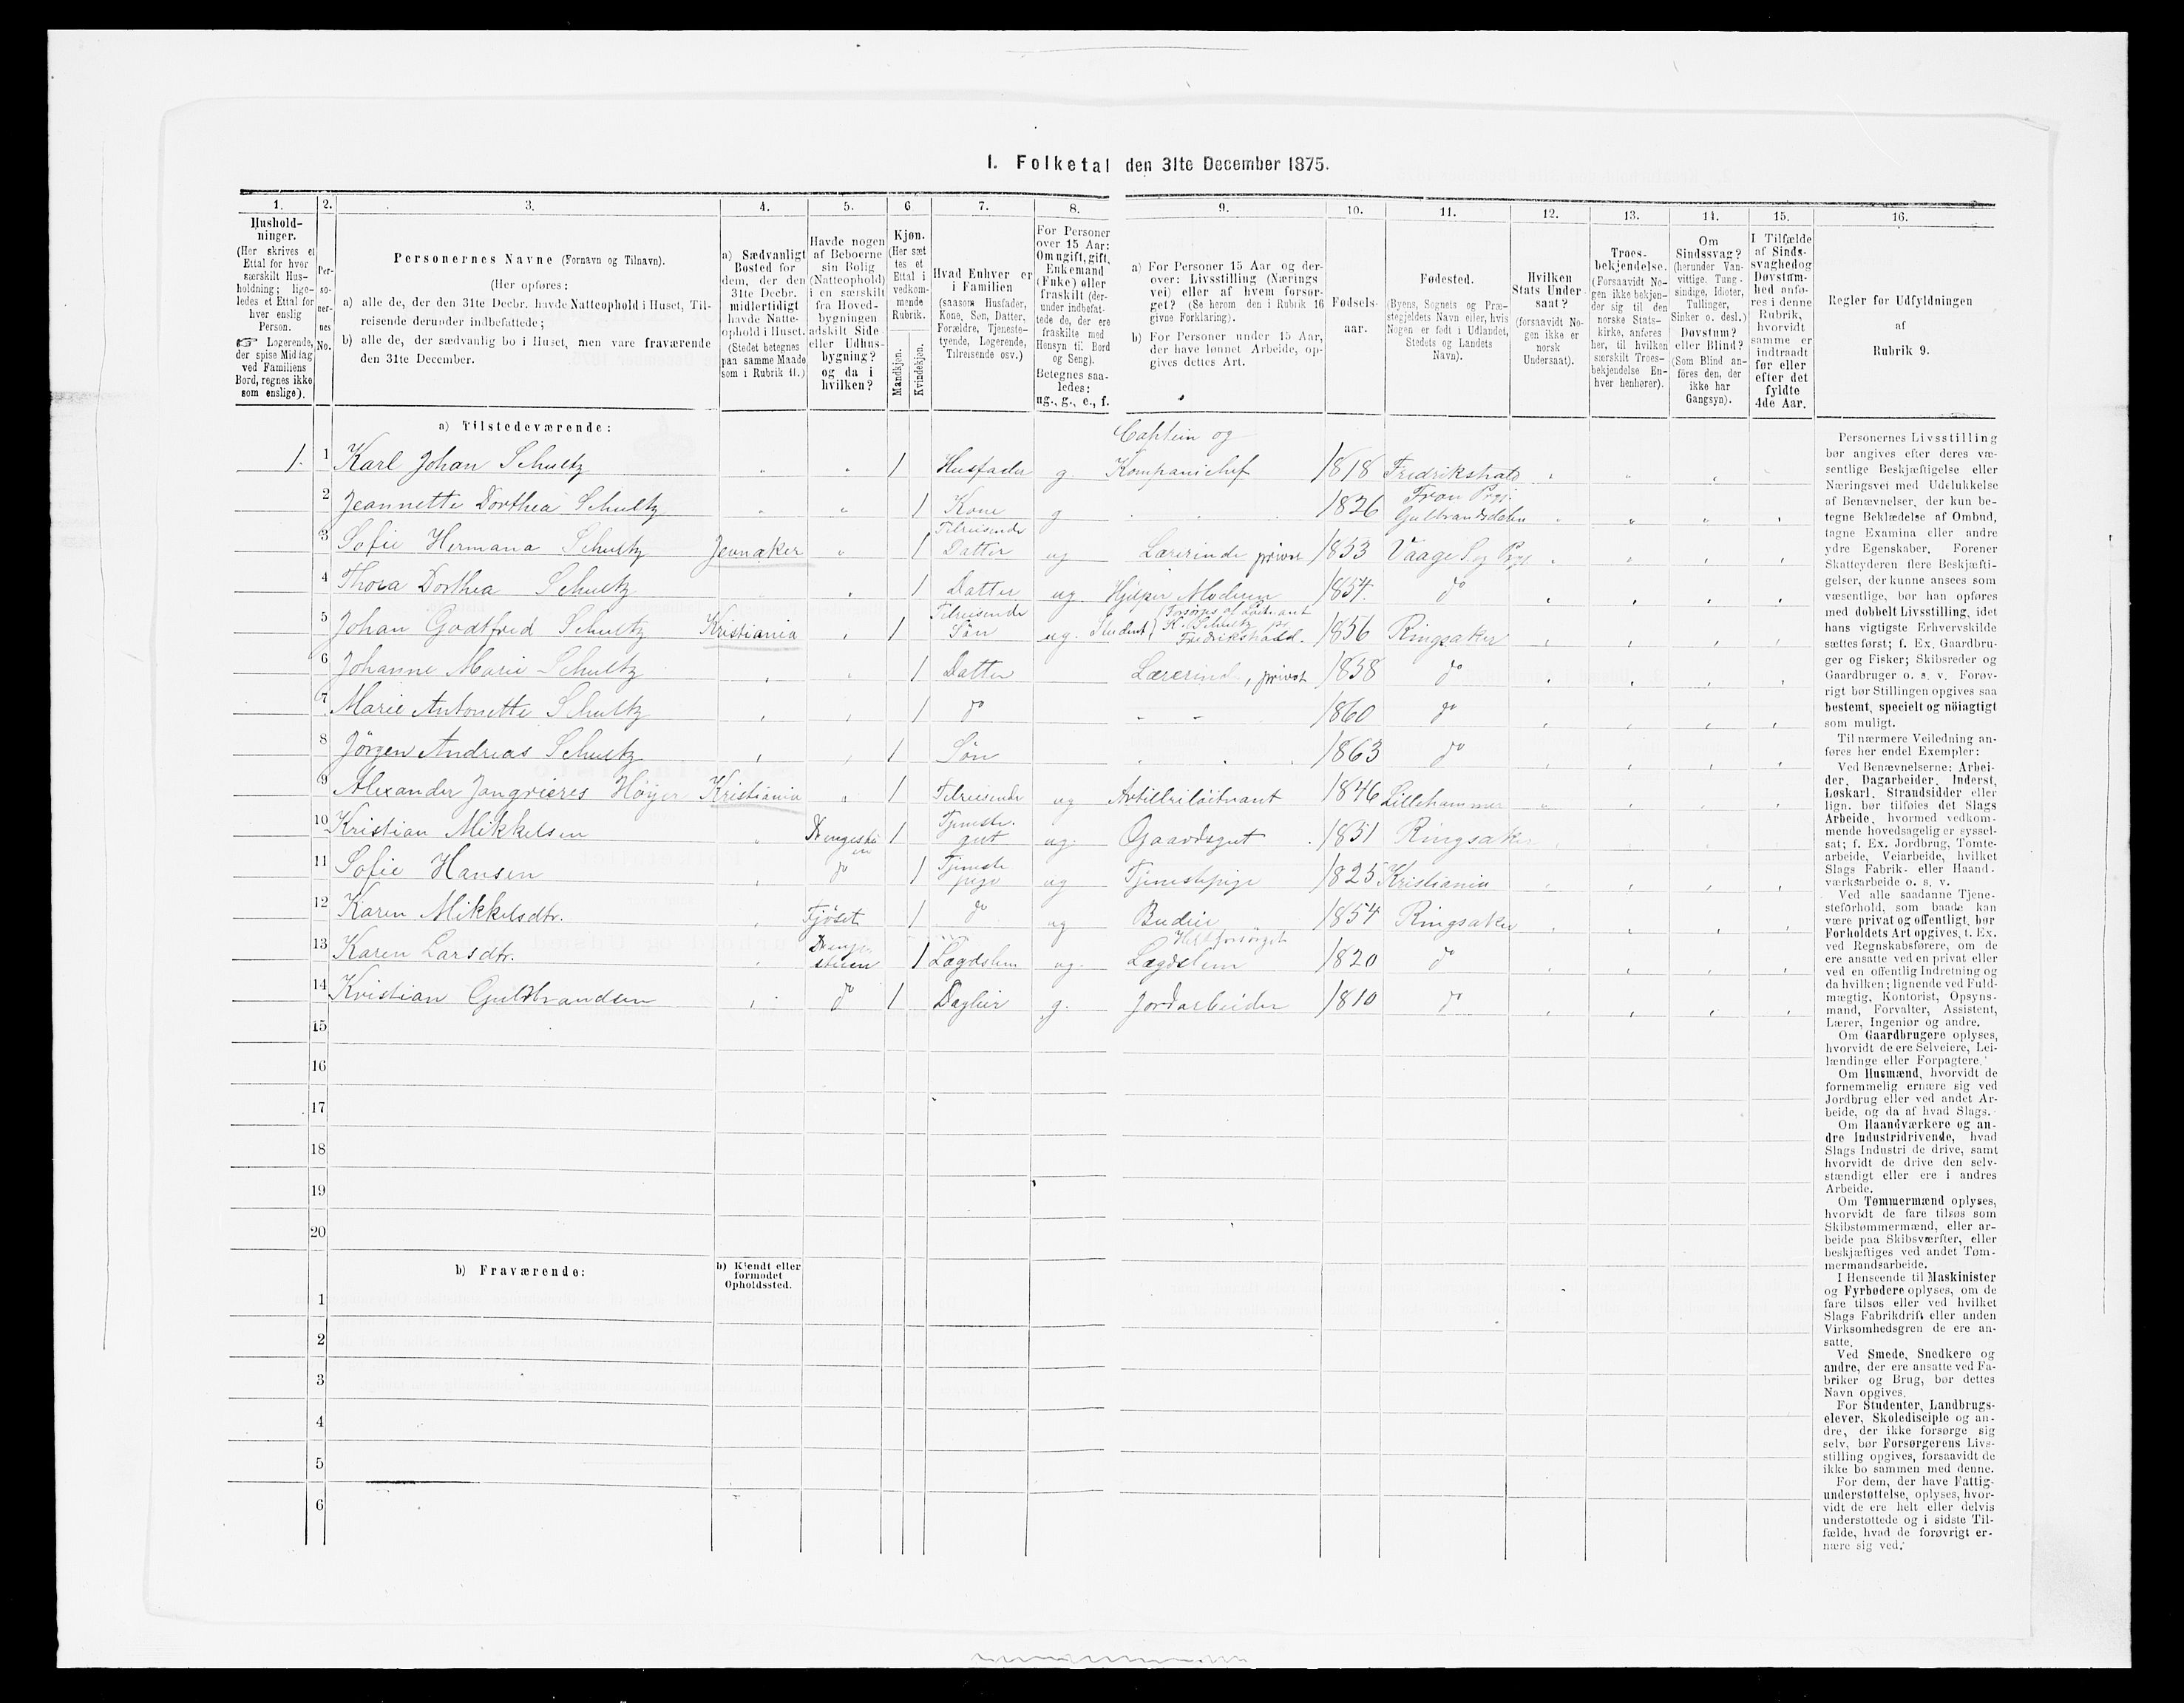 I. Folketal den 31te December 1875.
1. 2. 3. 4. 5. 6 7. 8. 9. 10. 11. 12. 13. 14. 15. 16.
Hushold-
ninger.
(Her skrives et
Ettal for hver
særskilt Hus-
holdning; lige-
ledes et Ettal for
hver enslig
Person.
☞ Logerende,
der spise Middag
ved Familiens
Bord, regnes ikke
som enslige).
Per-
so-
ner-
nes
No.
Personernes Navne (Fornavn og Tilnavn).
(Her opføres:
a) alle de, der den 31te Decbr. havde Natteophold i Huset, Til-
reisende derunder indbefattede;
b) alle de, der sædvanlig bo i Huset, men vare fraværende
den 31te December.
a) Sædvanligt
Bosted for
dem, der den
31te Decbr.
midlertidigt
havde Natte-
ophold i Huset.
(Stedet betegnes
paa samme Maade
som i Rubrik 11.)
Havde nogen
af Beboerne
sin Bolig
(Natteophold)
i en særskilt
fra Hoved-
bygningen
adskilt Side-
eller Udhus-
bygning?
og da i
hvilken?
Kjøn.
(Her sæt
tes et
Ettal i
vedkom-
mende
Rubrik.
Mandkjøn.
Kvindekjøn.
Hvad Enhver er
i Familien
(saasom Husfader,
Kone, Søn, Datter,
Forældre, Tjeneste-
tyende, Logerende,
Tilreisende osv.)
For Personer
over 15 Aar:
Om ugift, gift,
Enkemand
(Enke) eller
fraskilt (der-
under indbefat-
tede de, der ere
fraskilte med
Hensyn til Bord
og Seng).
Betegnes saa-
ledes:
ug., g., e., f.
a) For Personer 15 Aar og der-
over: Livsstilling (Nærings
vei) eller af hvem forsør-
get? (Se herom den i Rubrik 16
givne Forklaring).
b) For Personer under 15 Aar,
der have lønnet Arbeide, op-
gives dettes Art.
Fødsels-
aar.
Fødested.
(Byens, Sognets og Præ-
stegjeldets Navn eller, hvis
Nogen er født i Udlandet,
Stedets og Landets
Navn).
Hvilken
Stats Under
saat?
(forsaavidt No-
gen ikke er
norsk
Undersaat).
Troes-
bekjendelse.
(Forsaavidt No-
gen ikke bekjen-
der sig til den
norske Stats-
kirke, anføres
her, til hvilken
særskilt Troes-
bekjendelse En-
hver henhører).
Om
Sindssvag?
(herunder Van-
vittige, Tung-
sindige, Idioter,
Tullinger,
Sinker o. desl.)
Døvstum?
eller Blind?
(Som Blind an-
føres den, der
ikke har
Gangsyn).
I Tilfælde
af Sinds-
svaghed og
Døvstum-
hed anfø-
res i denne
Rubrik,
hvorvidt
samme er
indtraadt
før eller
efter det
fyldte
4de Aar.
Regler for Udfyldningen
af
Rubrik 9.
a) Tilstedeværende:
Captein og
1. 1 Karl Johan Schultz " " 1 Husfader g. Kompanichef 1818 Fredrikshald
2 Jeannette Dorthea Schultz " " 1 Kone g 1826 Fron Prgj. Gulbrandsdalen
3 Sofie Hermana Schultz Jevnaker " 1 Tilreisende Datter ug Lærerinde privat 1853 Vaage Sog Prgj
4 Thora Dorthea Schultz 1 Datter ug Hjelper Moderen 1854 do
5 Johan Godtfred Schultz Kristiania 1 Tilreisende Søn ug. Student (Forsørges af Løitnant K. Schultz pr. Fredrikshald. 1856 Ringsaker
6 Johanne Marie Schultz 1 Datter Lærerind, privat 1858 do
7 Marie Antonette Schultz 1 do - - 1860 do
8 Jörgen Andreas Schultz 1 Søn 1863 do
9 Alexander Høyer Kristiania 1 Tilreisende ug Artilleriløitnant 1846 Lillehammer
10 Kristian Mikkelsen 1 Tjenestegut ug. Gaardsgut 1851 Ringsaker
11 Sofie Hansen do 1 Tjenestepige ug Tjenestepige 1825 Kristiania
12 Karen Mikkelsdtr. Fjöset 1 do ug Budeie 1854 Ringsaker
13 Karen Larsdtr. Drengestuen 1 Lægdslem ug. Helt forsørget Lægdslem 1820 do
14 Kristian Guldbrandsen do 1 Dagleier g. Jordarbeider 1810 do
15
16
17
18
19
20
b) Fraværende:
b) Kjendt eller
formodet
Opholdssted.
1
2
3
4
5
6
Personernes Livsstilling
bør angives efter deres væ-
sentlige Beskjæftigelse eller
Næringsvei med Udelukkelse
af Benævnelser, der kun be-
tegne Beklædelse af Ombud,
tagne Examina eller andre
ydre Egenskaber. Forener
Skatteyderen flere Beskjæfti-
gelser, der kunne ansees som
væsentlige, bør han opføres
med dobbelt Livsstilling, idet
hans vigtigste Erhvervskilde
sættes først; f. Ex. Gaardbru-
ger og Fisker; Skibsreder og
Gaardbruger o. s. v. Forøv-
rigt bør Stillingen opgives saa
bestemt, specielt og nöiagtigt
som muligt.
Til nærmere Veiledning an-
føres her endel Exempler:
Ved Benævnelserne: Arbei-
der, Dagarbeider, Inderst,
Løskarl, Strandsidder eller
lign. bør tilføies det Slags
Arbeide, hvormed vedkom-
mende hovedsagelig er syssel-
sat; f. Ex. Jordbrug, Tomte-
arbeide, Veiarbeide, hvilket
Slags Fabrik- eller Haand-
værksarbeide o. s. v.
Ved alle saadanne Tjene-
steforhold, som baade kan
være privat og offentligt, bør
Forholdets Art opgives, f. Ex.
ved Regnskabsførere, om de
ere ansatte ved en privat eller
ved en offentlig Indretning og
da hvilken; lignende ved Fuld-
mægtig, Kontorist, Opsyns-
mand, Forvalter, Assistent,
Lærer, Ingeniør og andre.
Om Gaardbrugere oplyses,
hvorvidt de ere Selveiere, Lei-
lændinge eller Forpagtere.
Om Husmænd, hvorvidt de
fornemmelig ernære sig ved
Jordbrug eller ved andet Ar-
beide, og da af hvad Slags.
Om Haandværkere og an-
dre Industridrivende, hvad
Slags Industri de drive, samt
hvorvidt de drive den selv-
stændigt eller ere i andres
Arbeide.
Om Tømmermænd oplyses,
hvorvidt de fare tilsøs som
Skibstømmermænd, eller ar-
beide paa Skibsværfter, eller
beskjæftiges ved andet Tøm-
mermandsarbeide.
I Henseende til Maskinister
og Fyrbødere oplyses, om de
fare tilsøs eller ved hvilket
Slags Fabrikdrift eller anden
Virksomhedsgren de ere an-
satte.
Ved Smede, Snedkere og
andre, der ere ansatte ved Fa-
briker og Brug, bør dettes
Navn opgives.
For Studenter, Landbrugs-
elever, Skoledisciple og an-
dre, der ikke forsørge sig
selv, bør Forsørgerens Livs-
stilling opgives, forsaavidt de
ikke bo sammen med denne.
For dem, der have Fattig-
understøttelse, oplyses, hvor-
vidt de ere helt eller delvis
understøttede og i sidste Til-
fælde, hvad de forøvrigt er-
nære sig ved.